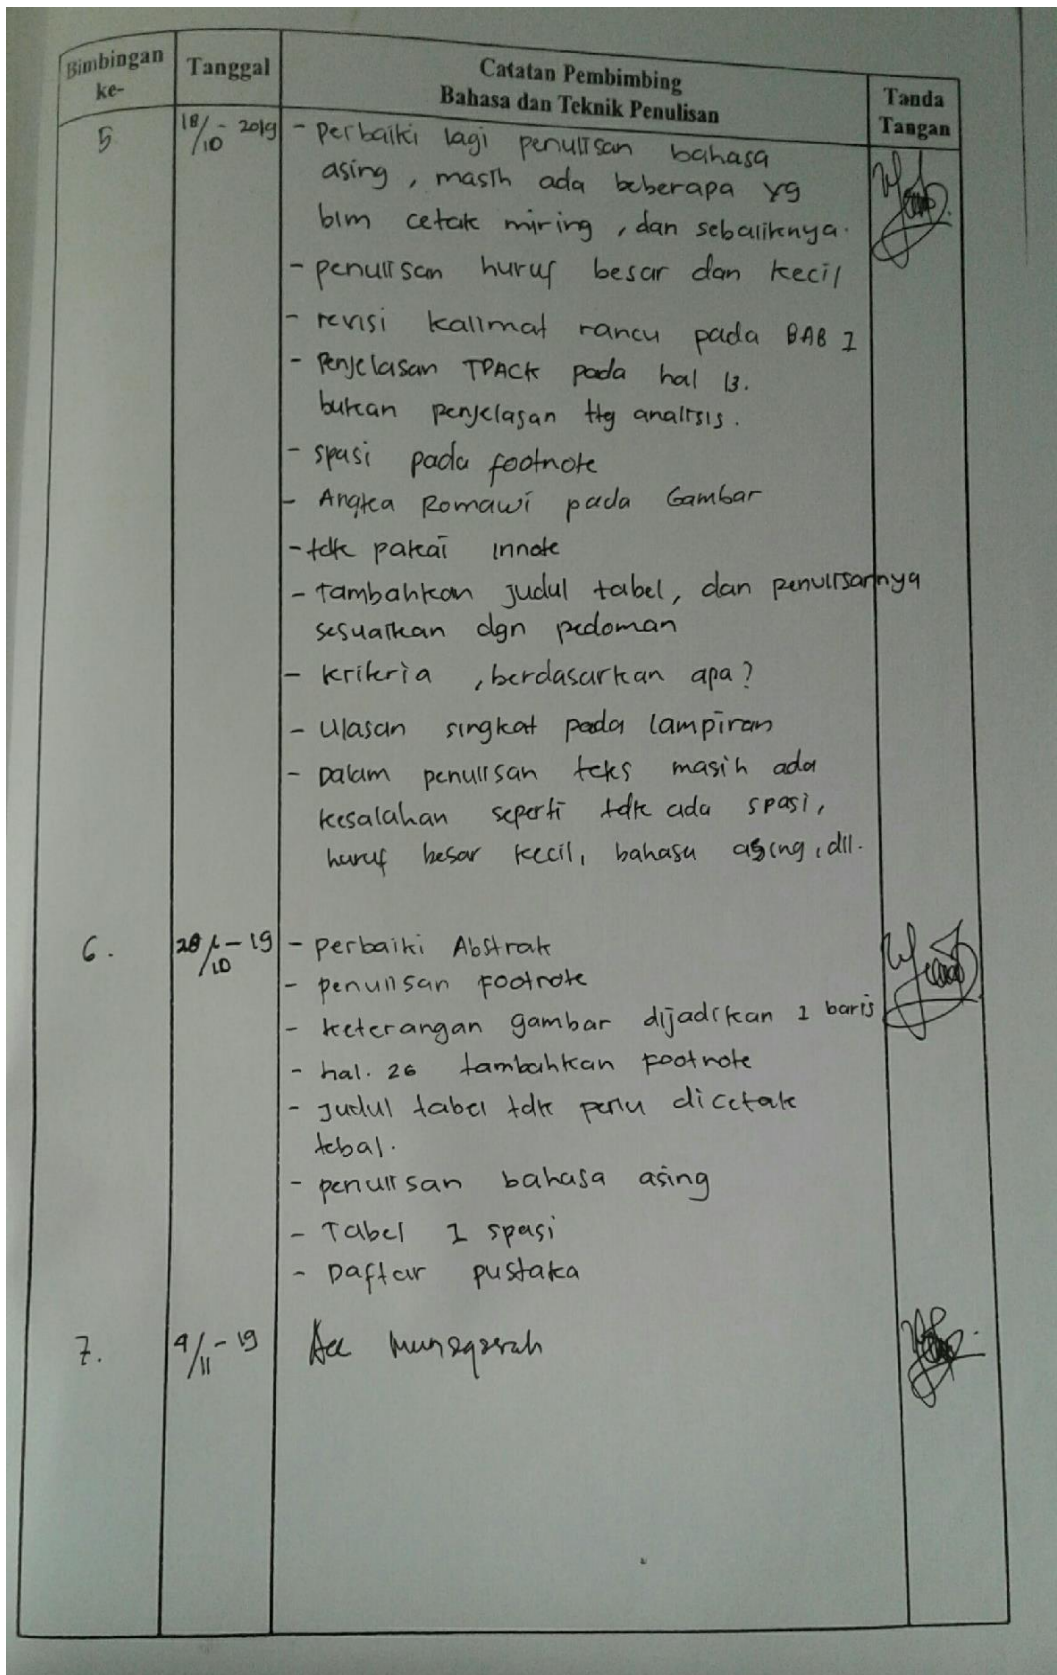 Bimbingan ke-
Tanggal
Catatan Pembimbing
Bahasa dan Teknik Penulisan
Tanda Tangan
5
18/10 - 2019
- perbaiki lagi penulisan bahasa
asing, masih ada beberapa yg
blm cetak miring, dan sebaliknya.
- penulisan huruf besar dan kecil
- revisi kalimat rancu pada BAB I
- Penjelasan TPACK pada hal 13.
bukan penjelasan ttg analisis.
- spasi pada footnote
- Angka Romawi pada Gambar
- tdk pakai innote
- Tambahkan judul tabel, dan penulisannya
sesuaikan dgn pedoman
- kriteria, berdasarkan apa?
- Ulasan singkat pada lampiran
- Dalam penulisan teks masih ada
kesalahan seperti tdk ada spasi,
huruf besar kecil, bahasa asing, dll.
6.
28/10 - 19
- perbaiki Abstrak
- penulisan Footnote
- keterangan gambar dijadikan 1 baris
- hal. 26 tambahkan footnote
- judul tabel tdk perlu dicetak
tebal.
- penulisan bahasa asing
- Tabel 1 spasi
- Daftar pustaka
7.
4/11 - 19
Acc munaqasah